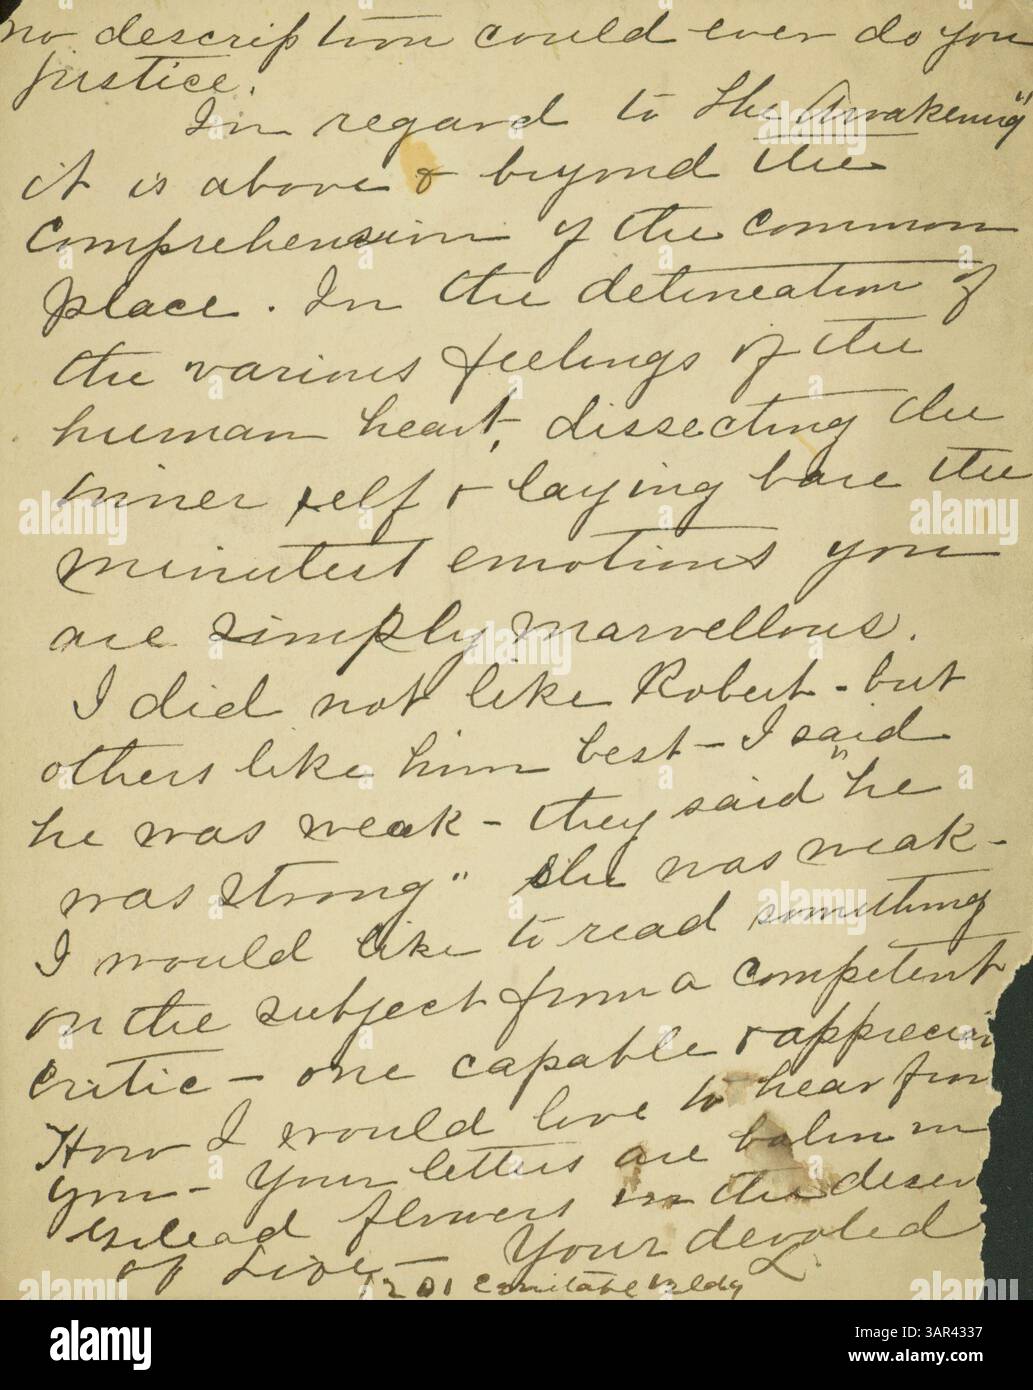 no description could ever do you
justice.
In regard to The Awakening"
it is above & beyond the
comprehension of the common
place. In the delineation of
the various feelings of the
human heart, dissecting the
inner self & laying bare the
minutest emotions you
are simply marvellous.
I did not like Robert - but
others like him best - I said
he was weak - they said "he
was strong" she was weak -
I would like to read something
on the subject from a competent
critic - one capable & apprecia
How I would love to hear from
you - Your letters are balm in
Gilead flowers in the deser
of Life - Your devoted
1201 Equitable Bldg L
alamy
Image ID: 3AR4337
www.alamy.com